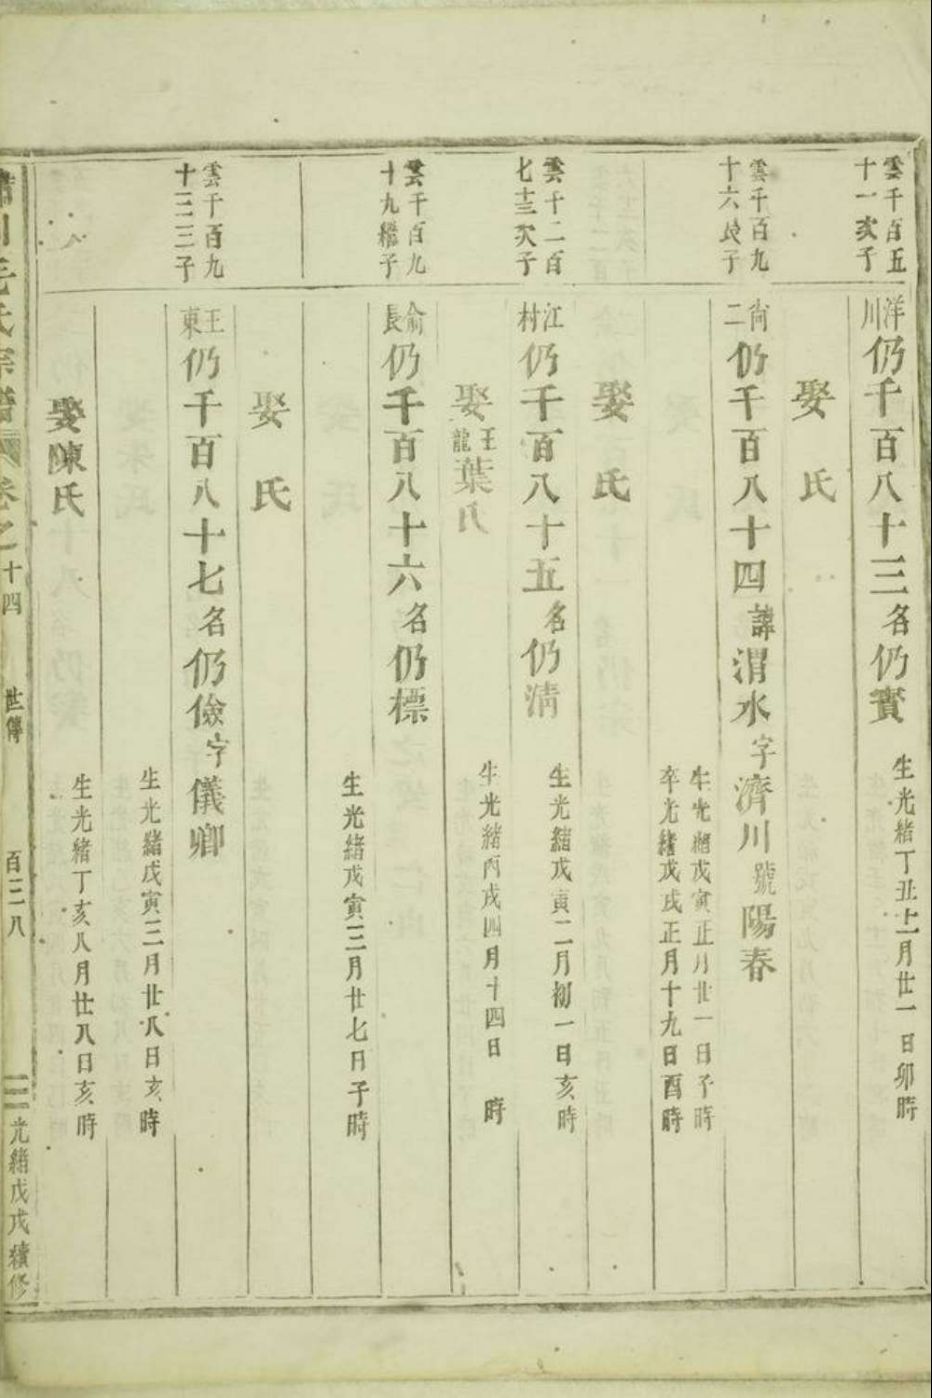 雲千百五
十一次子
洋川仍千百八十三名仍賓
生光緒丁丑十二月廿一日卯時
娶 氏
雲千百九
十六長子
尚二仍千百八十四諱渭水字濟川號陽春
生光緒戊寅正月廿一日子時
卒光緒戊戌正月十九日酉時
娶 氏
雲千二百
七十三次子
江村仍千百八十五名仍清
生光緒戊寅二月初一日亥時
娶王龍葉氏
生光緒丙戌四月十四日 時
雲千百九
十九繼子
俞長仍千百八十六名仍標
生光緒戊寅三月廿七日子時
娶 氏
雲千百九
十三三子
王東仍千百八十七名仍儉字儀卿
生光緒戊寅三月廿八日亥時
娶陳氏
生光緒丁亥八月廿八日亥時
川毛氏宗譜 卷之十四 世傳 百三八 光緒戊戌續修